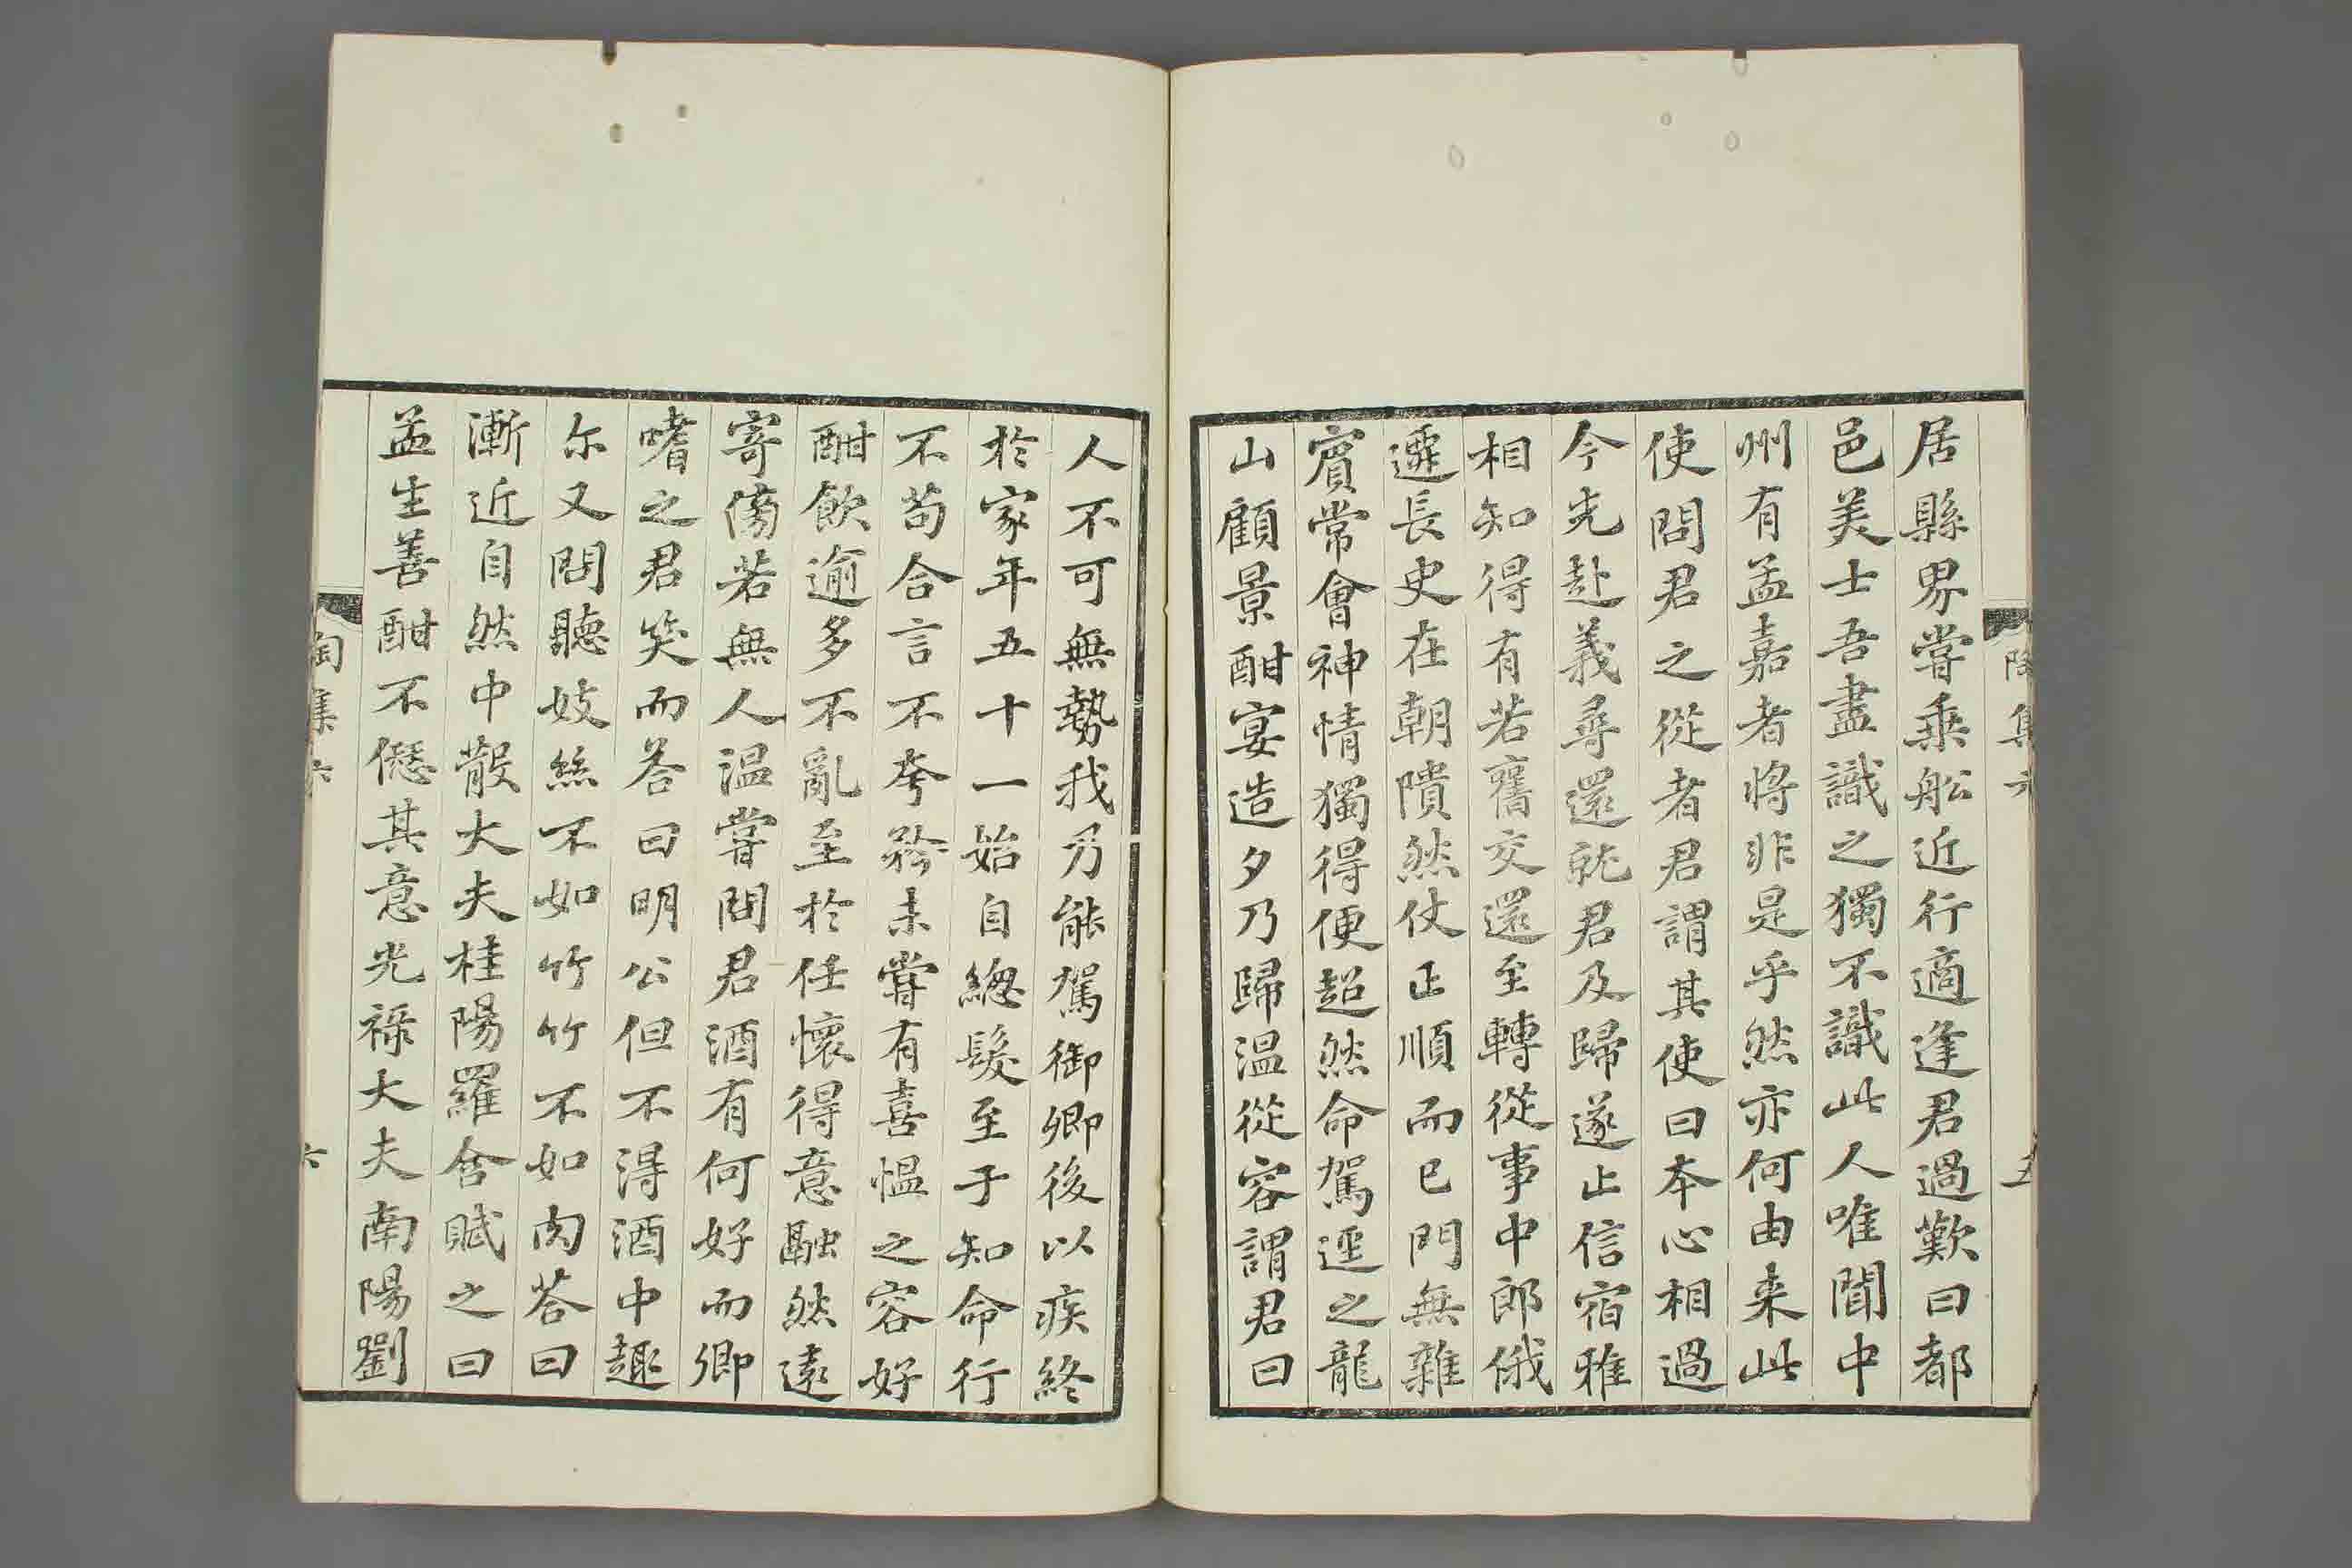 陶集六
五
居縣界嘗乘舩近行適逢君過歎曰都
邑美士吾盡識之獨不識此人唯聞中
州有孟嘉者將非是乎然亦何由来此
使問君之從者君謂其使曰本心相過
今先赴義尋還就君及歸遂止信宿雅
相知得有若舊交還至轉從事中郎俄
遷長史在朝隤然仗正順而已門無雜
賔常會神情獨得便超然命駕逕之龍
山顧景酣宴造夕乃歸温從容謂君曰
人不可無勢我乃能駕御卿後以疾終
於家年五十一始自緫髮至于知命行
不苟合言不夸矜未嘗有喜愠之容好
酣飲逾多不亂至於任懷得意融然遠
寄傍若無人温嘗問君酒有何好而卿
嗜之君笑而荅曰明公但不得酒中趣
尓又問聽妓絲不如竹竹不如肉荅曰
漸近自然中散大夫桂陽羅含賦之曰
孟生善酣不愆其意光禄大夫南陽劉
陶集六
六